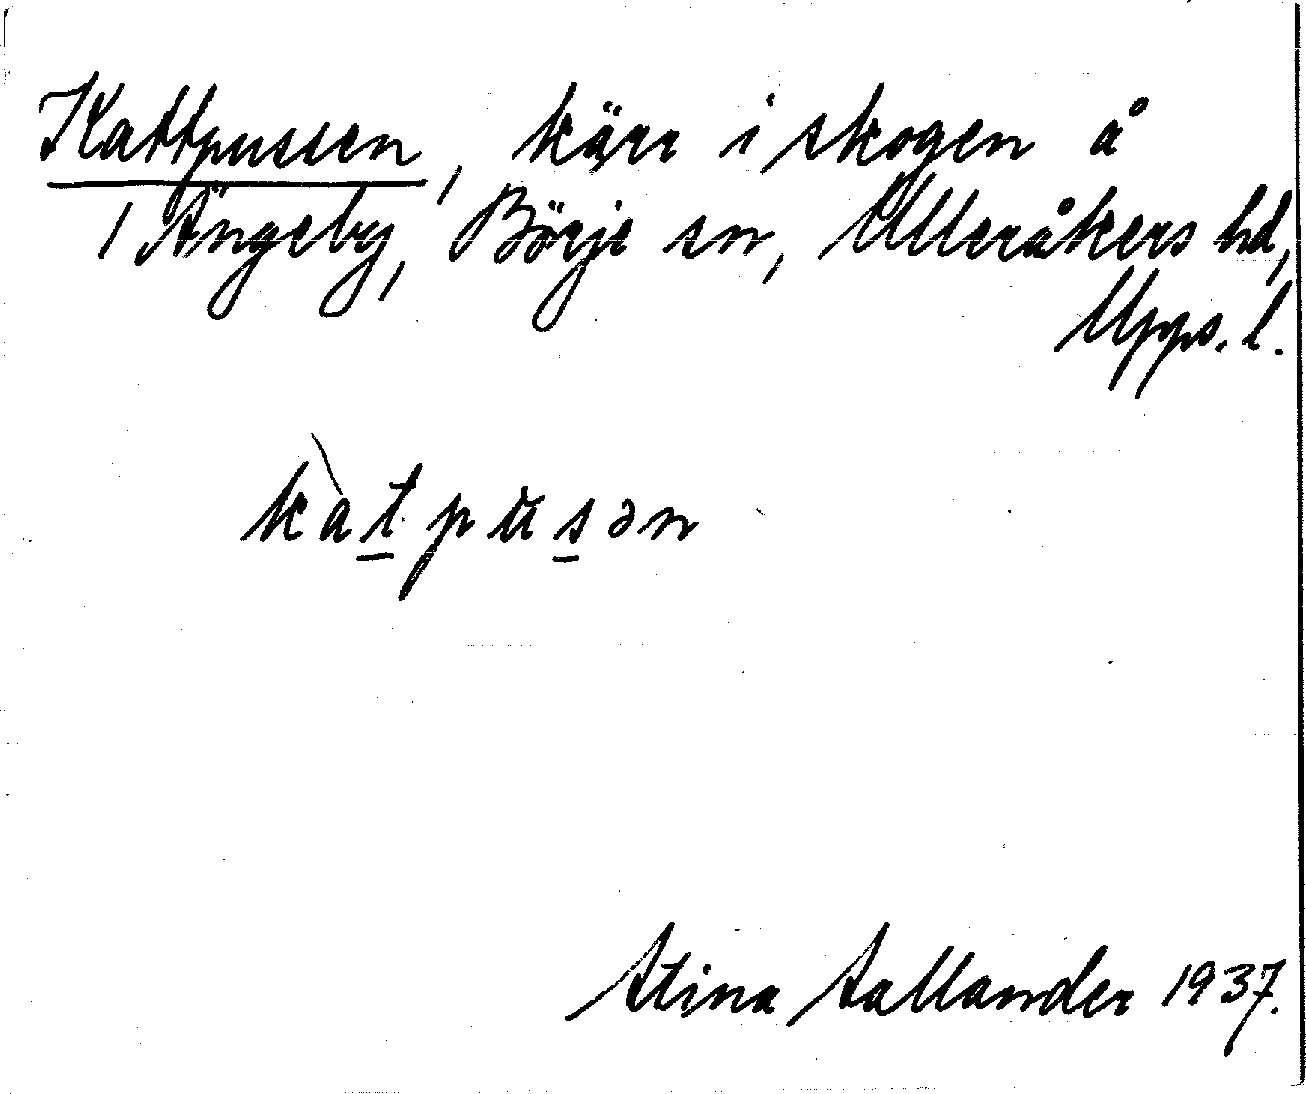 Kattpussen, kärr i skogen å
1 Ängeby, Börje sn, Ulleråkers hd,
Upps. l.
kàt̲pus̲ən
Stina Sallander 1937.